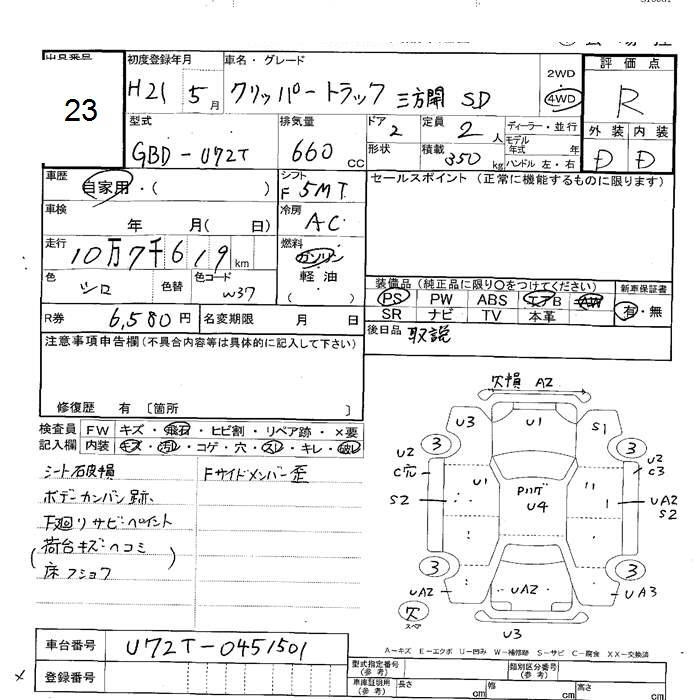 23
初度登録年月 車名・グレード 2WD 評価点
H21 5月 クリッパートラック 三方開 SD 4WD R
型式 排気量 ドア 2 定員 2人 ディーラー・並行 外装 内装
GBD-U72T 660cc 形状 積載 350kg モデル年式 年 D D
ハンドル 左・右
車歴 シフト セールスポイント (正常に機能するものに限ります)
自家用・( ) F 5MT
車検 冷房
年 月( 日) AC
走行 燃料
10万7千619km ガソリン
色 シロ 色替 色コード W37 軽油
( )
装備品(純正品に限り○をつけてください) 新車保証書
PS PW ABS エアB AW 有・無
R券 6,580円 名変期限 月 日 SR ナビ TV 本革
注意事項申告欄(不具合内容等は具体的に記入して下さい) 後日品 取説
欠損 A2
修復歴 有 〔箇所 〕
検査員 FW キズ・飛石・ヒビ割・リペア跡・×要
記入欄 内装 キズ・汚レ・コゲ・穴・スレ・キレ・破レ
U3 U1 S1
3 3
U2 U2
C穴 C3
シート破損 Fサイドメンバー歪
ボデーカンバン跡、
下廻りサビ・ペイント
(荷台キズ・ヘコミ)
床フショク
U1 Pハゲ U4 1
S2 UA2
S2
3 3
UA2 UA2 UA3
欠
スペア
U3
車台番号 U72T-0451501
A-キズ E-エクボ U-凹み W-補修跡 S-サビ C-腐食 XX-交換済
× 登録番号 型式指定番号(参考) 類別区分番号(参考)
車庫証明用(参考) 長さ cm 幅 cm 高さ cm